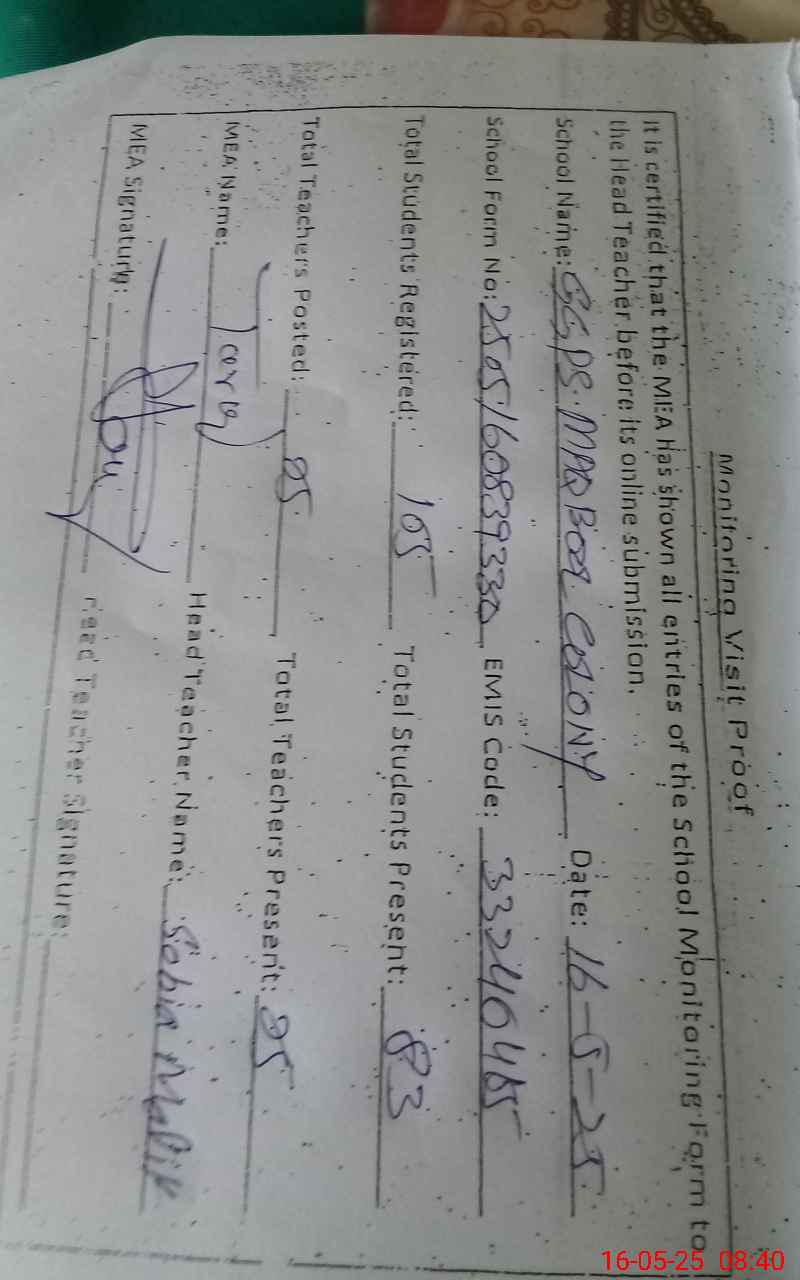 Monitoring Visit Proof
It is certified that the MEA has shown all entries of the School Monitoring Form to
the Head Teacher before its online submission.
School Name: GGPS. MAQBOOL COLONY Date: 16-5-25
School Form No: 2505160839330 EMIS Code: 33240485
Total Students Registered: 105 Total Students Present: 83
Total Teachers Posted: 05 Total Teachers Present: 05
MEA Name: Head Teacher Name: Sobia Malik
MEA Signature: Head Teacher Signature:
16-05-25 08:40